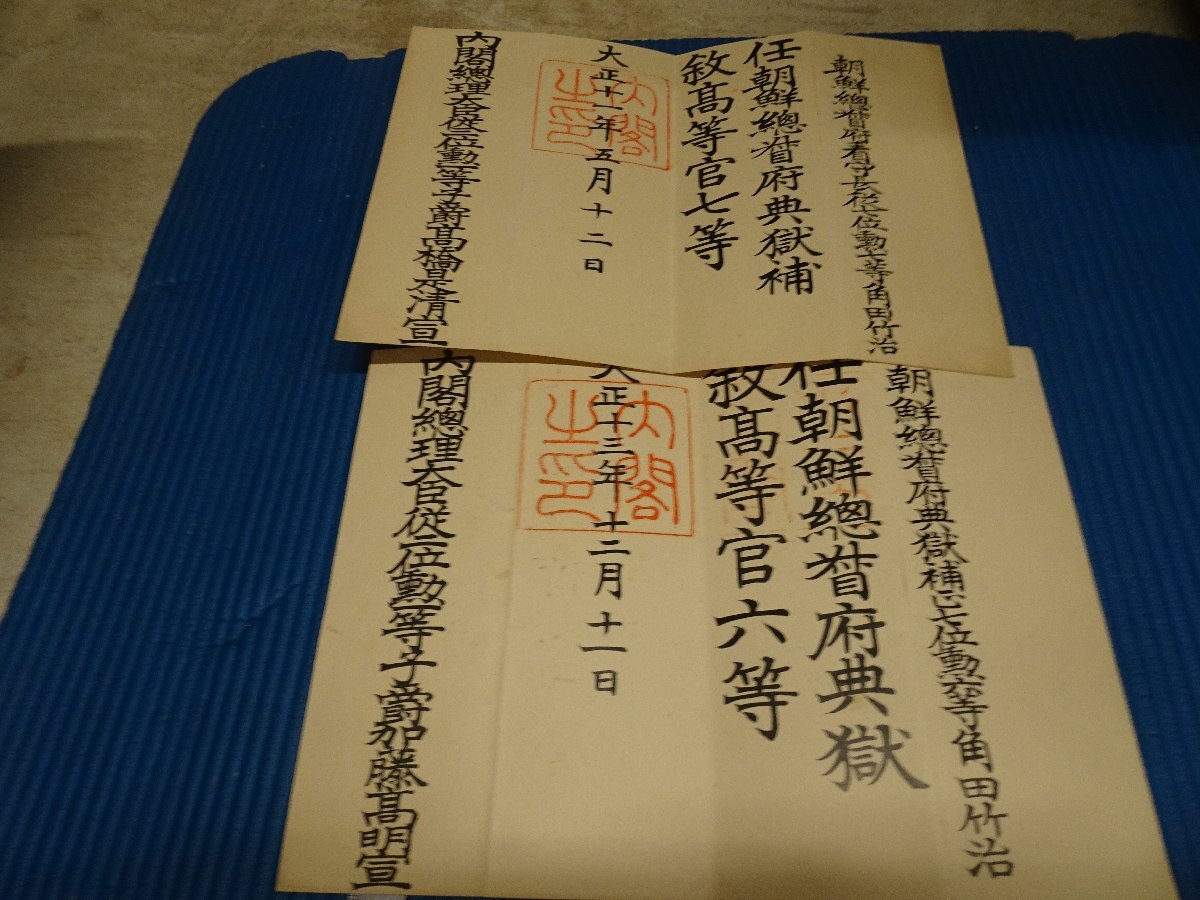 朝鮮總督府看守長從七位勳七等角田竹治
任朝鮮總督府典獄補
敘高等官七等
大正十一年五月十二日
內閣之印
內閣總理大臣從二位勳一等子爵高橋是清宣
朝鮮總督府典獄補正七位勳六等角田竹治
任朝鮮總督府典獄
敘高等官六等
大正十三年十二月十一日
內閣之印
內閣總理大臣從二位勳一等子爵加藤高明宣